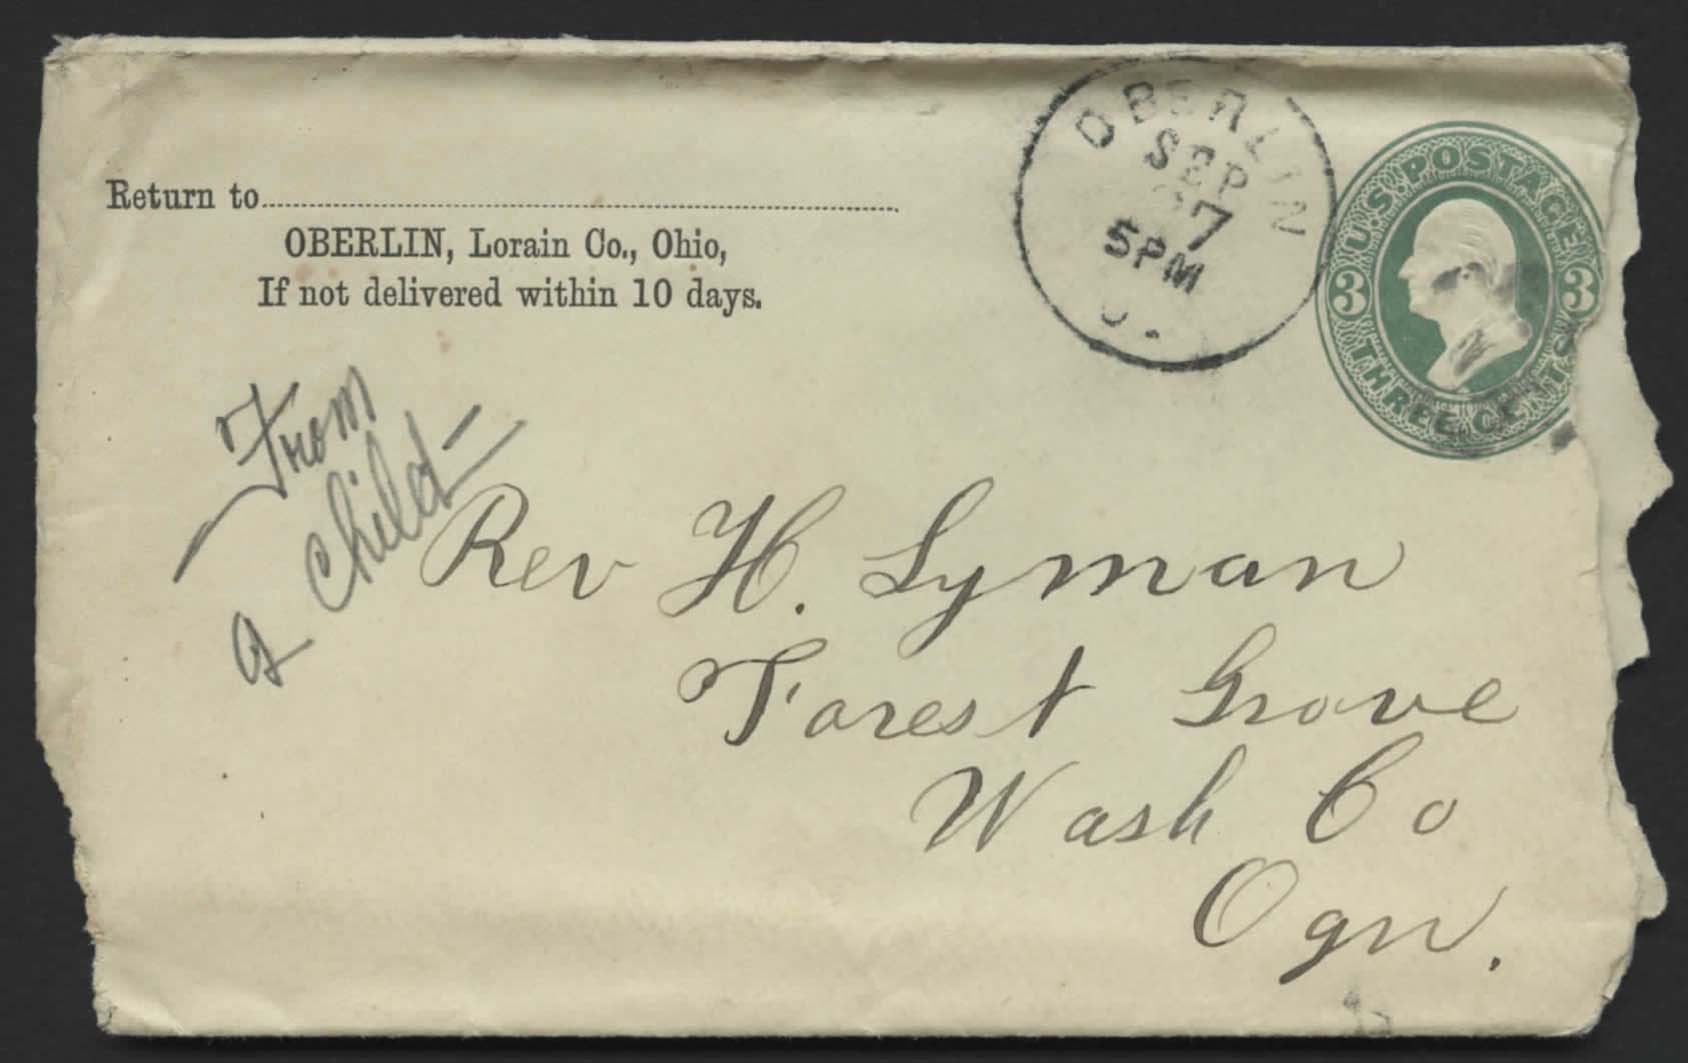 Return to
OBERLIN, Lorain Co., Ohio,
If not delivered within 10 days.
OBERLIN
SEP
7
5PM
O.
U.S. POSTAGE
3 3
THREE CENTS
From
a child
Rev H. Lyman
Forest Grove
Wash Co
Ogn.